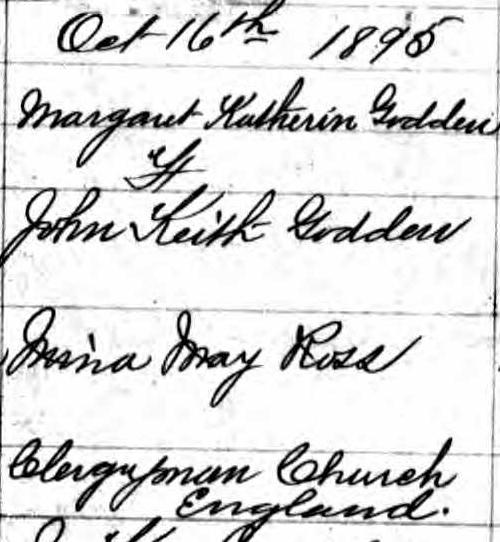 Oct 16th 1895
Margaret Katherin Godden
F
John Keith Godden
Mina May Ross
Clergyman Church
England.